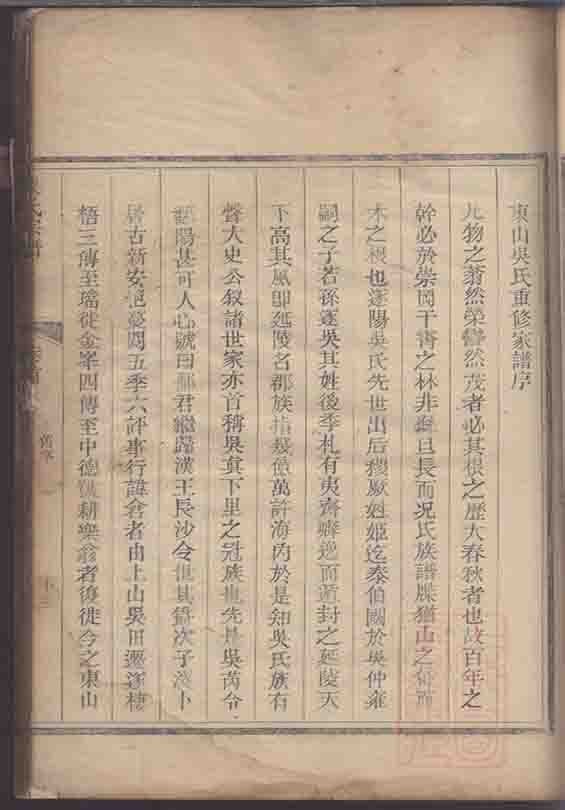 東山吳氏重修家譜序
凡物之蓊然榮鬱然茂者必其根之歷大春秋者也故百年之
幹必於崇岡干霄之林非 且長而况氏族譜牒猶山之有
木之根也遂陽吳氏先世出后稷厥姓姬迄泰伯國於吳仲雍
嗣之子若孫遂吳其姓後季札有夷齊 逸而 封之延陵天
下高其風卽延陵名郡族指幾億萬許海內於是知吳氏族有
聲太史公叙諸世家亦首稱吳 下里之冠族也先是吳芮令
陽甚得人心號曰 君繼歸漢王長沙令 其 次子淺卜
居古新安 蔓閱五季六評事行諱 者由上山吳田遷遂棲
梧三傳至瑫徙金峯四傳至中德 耕樂翁者復徙今之東山
氏宗譜
舊序